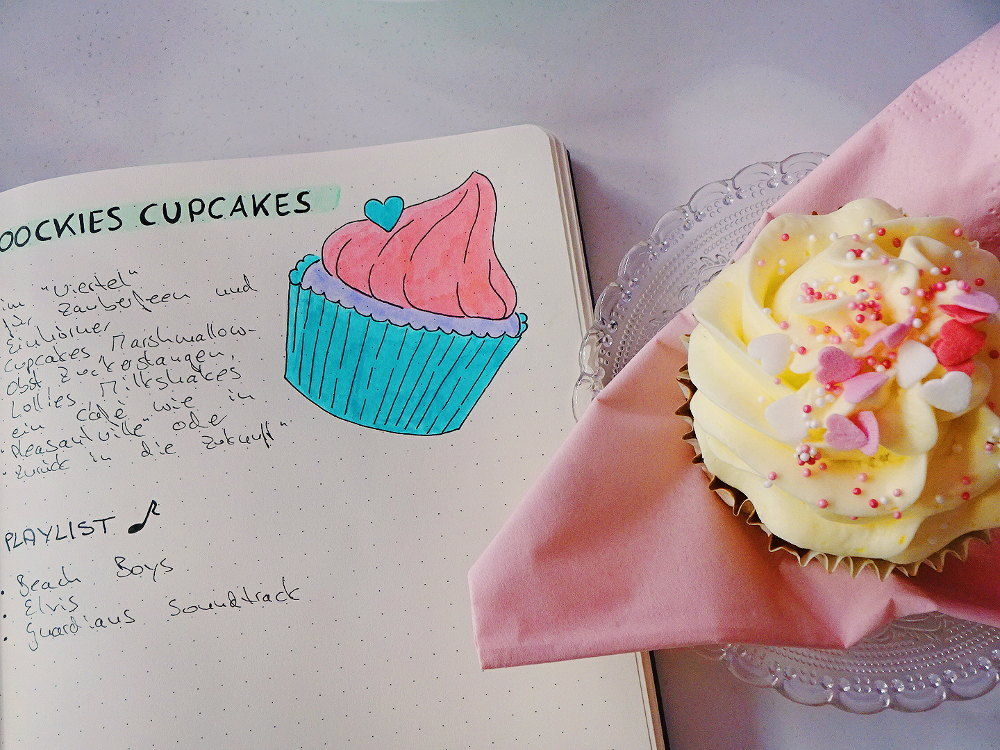 OOCKIES CUPCAKES
im "Viertel"
für Zauberfeen und
Einhörner
cupcakes, Marshmallow-
obst Zuckerstangen,
Lollies, Milkshakes
ein Café wie in
"Pleasantville" oder
"Zurück in die Zukunft"
PLAYLIST
• Beach Boys
• Elvis
• Guardians Soundtrack